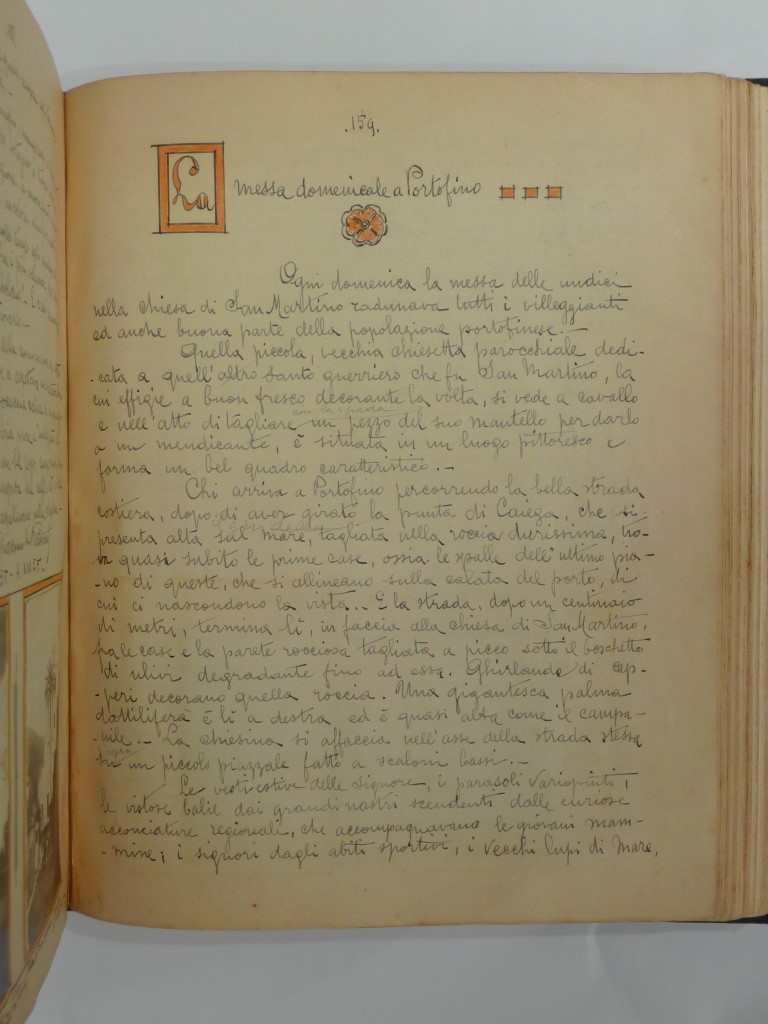 .159.
La messa domenicale a Portofino
Ogni domenica la messa delle undici
nella chiesa di San Martino radunava tutti i villeggianti
ed anche buona parte della popolazione portofinese. —
Quella piccola, vecchia chiesetta parocchiale dedi-
-cata a quell'altro santo guerriero che fu San Martino, la
cui effigie a buon fresco decorante la volta, si vede a cavallo
con la spada
e nell'atto di tagliare un pezzo del suo mantello per darlo
a un mendicante, è situata in un luogo pittoresco e
forma un bel quadro caratteristico. —
Chi arriva a Portofino percorrendo la bella strada
costiera, dopo di aver girato la punta di Caiega, che si
presenta alta sul mare, tagliata nella roccia durissima, tro-
va quasi subito le prime case, ossia le spalle dell'ultimo pia-
-no di queste, che si allineano sulla calata del porto, di
cui ci nascondono la vista.. E la strada, dopo un centinaio
di metri, termina lì, in faccia alla chiesa di San Martino,
fra le case e la parete rocciosa tagliata a picco sotto il boschetto
di ulivi degradante fino ad essa. Ghirlande di cap-
-peri decorano quella roccia. Una gigantesca palma
dattilifera è lì a destra ed è quasi alta come il campa-
-nile. — La chiesina si affaccia nell'asse della strada stessa
su un piccolo piazzale fatto a scaloni bassi. —
Le vesti estive delle signore, i parasoli variopinti,
le vistose balie dai grandi nastri scendenti dalle curiose
acconciature regionali, che accompagnavano le giovani mam-
-mine; i signori dagli abiti sportivi, i vecchi lupi di mare,